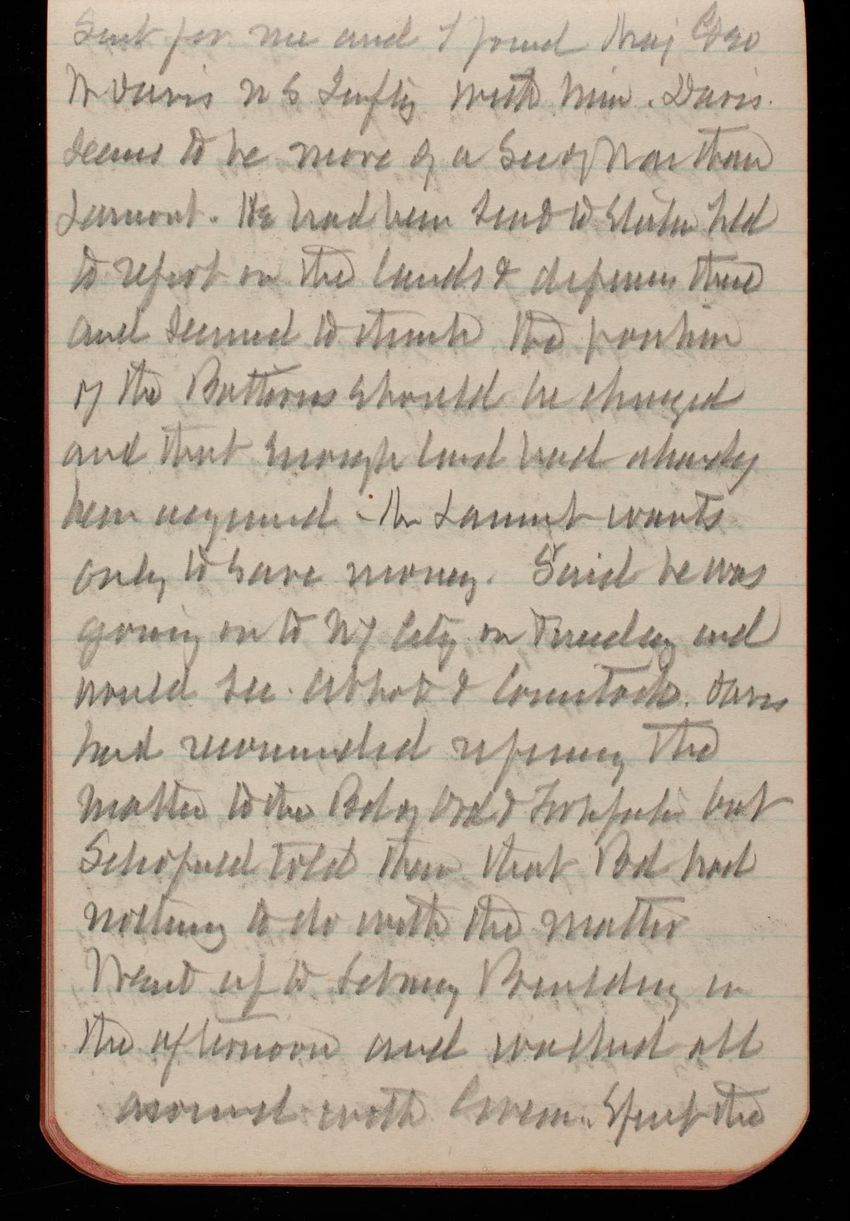 Sent for me and I found Maj Geo
W Davis U S Infty with him. Davis
seems to be more of a Sec of War than
Lamont. He had been sent to Staten Isld
to report on the lands & defenses there
and seemed to think the position
of the Batteries should be changed
and that enough land had already
been acquired - Mr Lamont wants
only to save money. Said he was
going on to NY City on Tuesday and
would see Abbot & Comstock. Davis
had recommended refering the
matter to the Bd of Ord & Fortif but
Schofield told them that Bd had
nothing to do with the matter
Went up to Library Building in
the afternoon and walked all
around with Green. Spent the